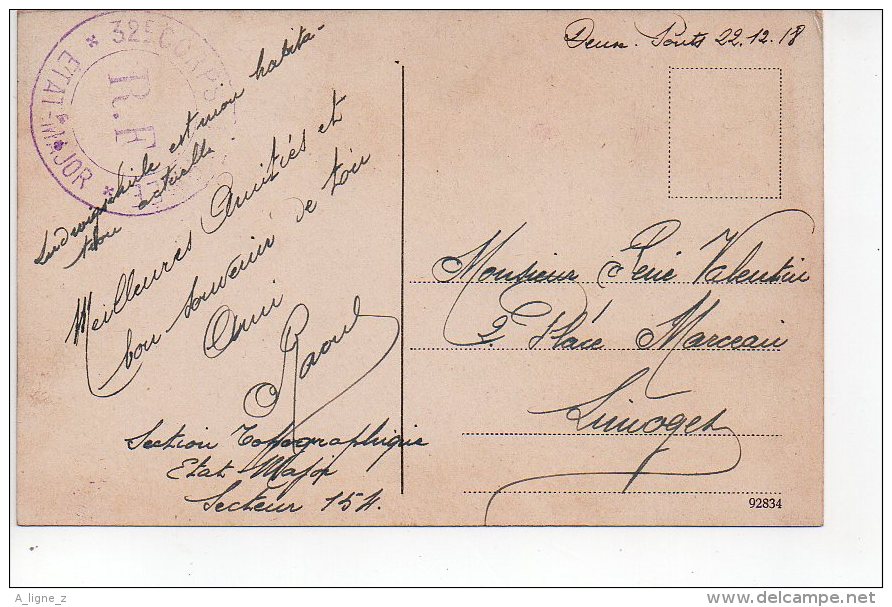 Deux-Ponts 22.12.18
* 32E CORPS
ETAT-MAJOR *
R.F
Ludwigschule est mon habita-
tion actuelle
Meilleures Amitiés et
bon souvenir de ton
Ami
Raoul
Section Topographique
Etat Major
Secteur 154.
Monsieur René Valentin
2. Place Marceau
Limoges
92834
A_ligne_z
delcampe.net